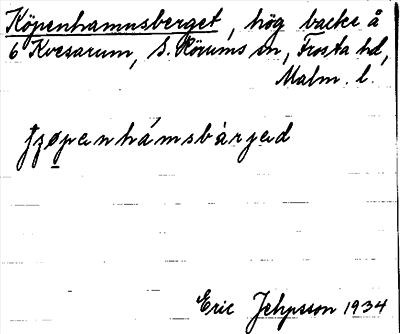 Köpenhamnsberget, hög backe å
6 Kvesarum, S. Rörums sn, Frosta hd,
Malm. l.
Eric Jehpsson 1934